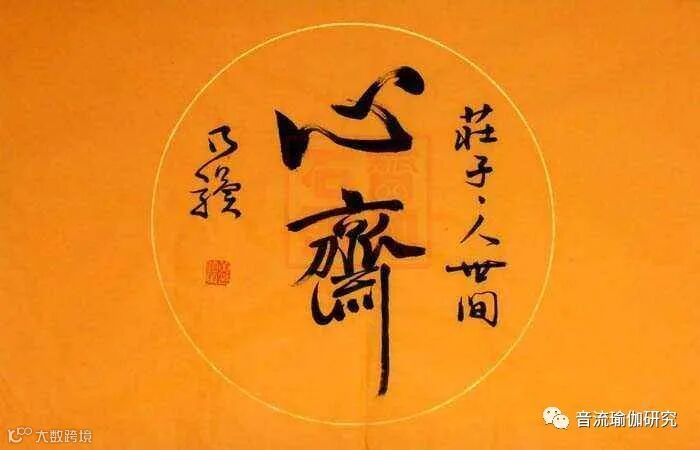 莊子、人世間
心齋
音流瑜伽研究
大数跨境